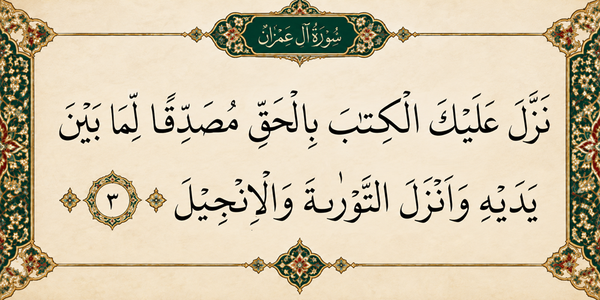 سُورَةُ آلِ عِمْرَان
نَزَّلَ عَلَيْكَ الْكِتٰبَ بِالْحَقِّ مُصَدِّقًا لِّمَا بَيْنَ
يَدَيْهِ وَاَنْزَلَ التَّوْرٰىةَ وَالْاِنْجِيْلَ ٣